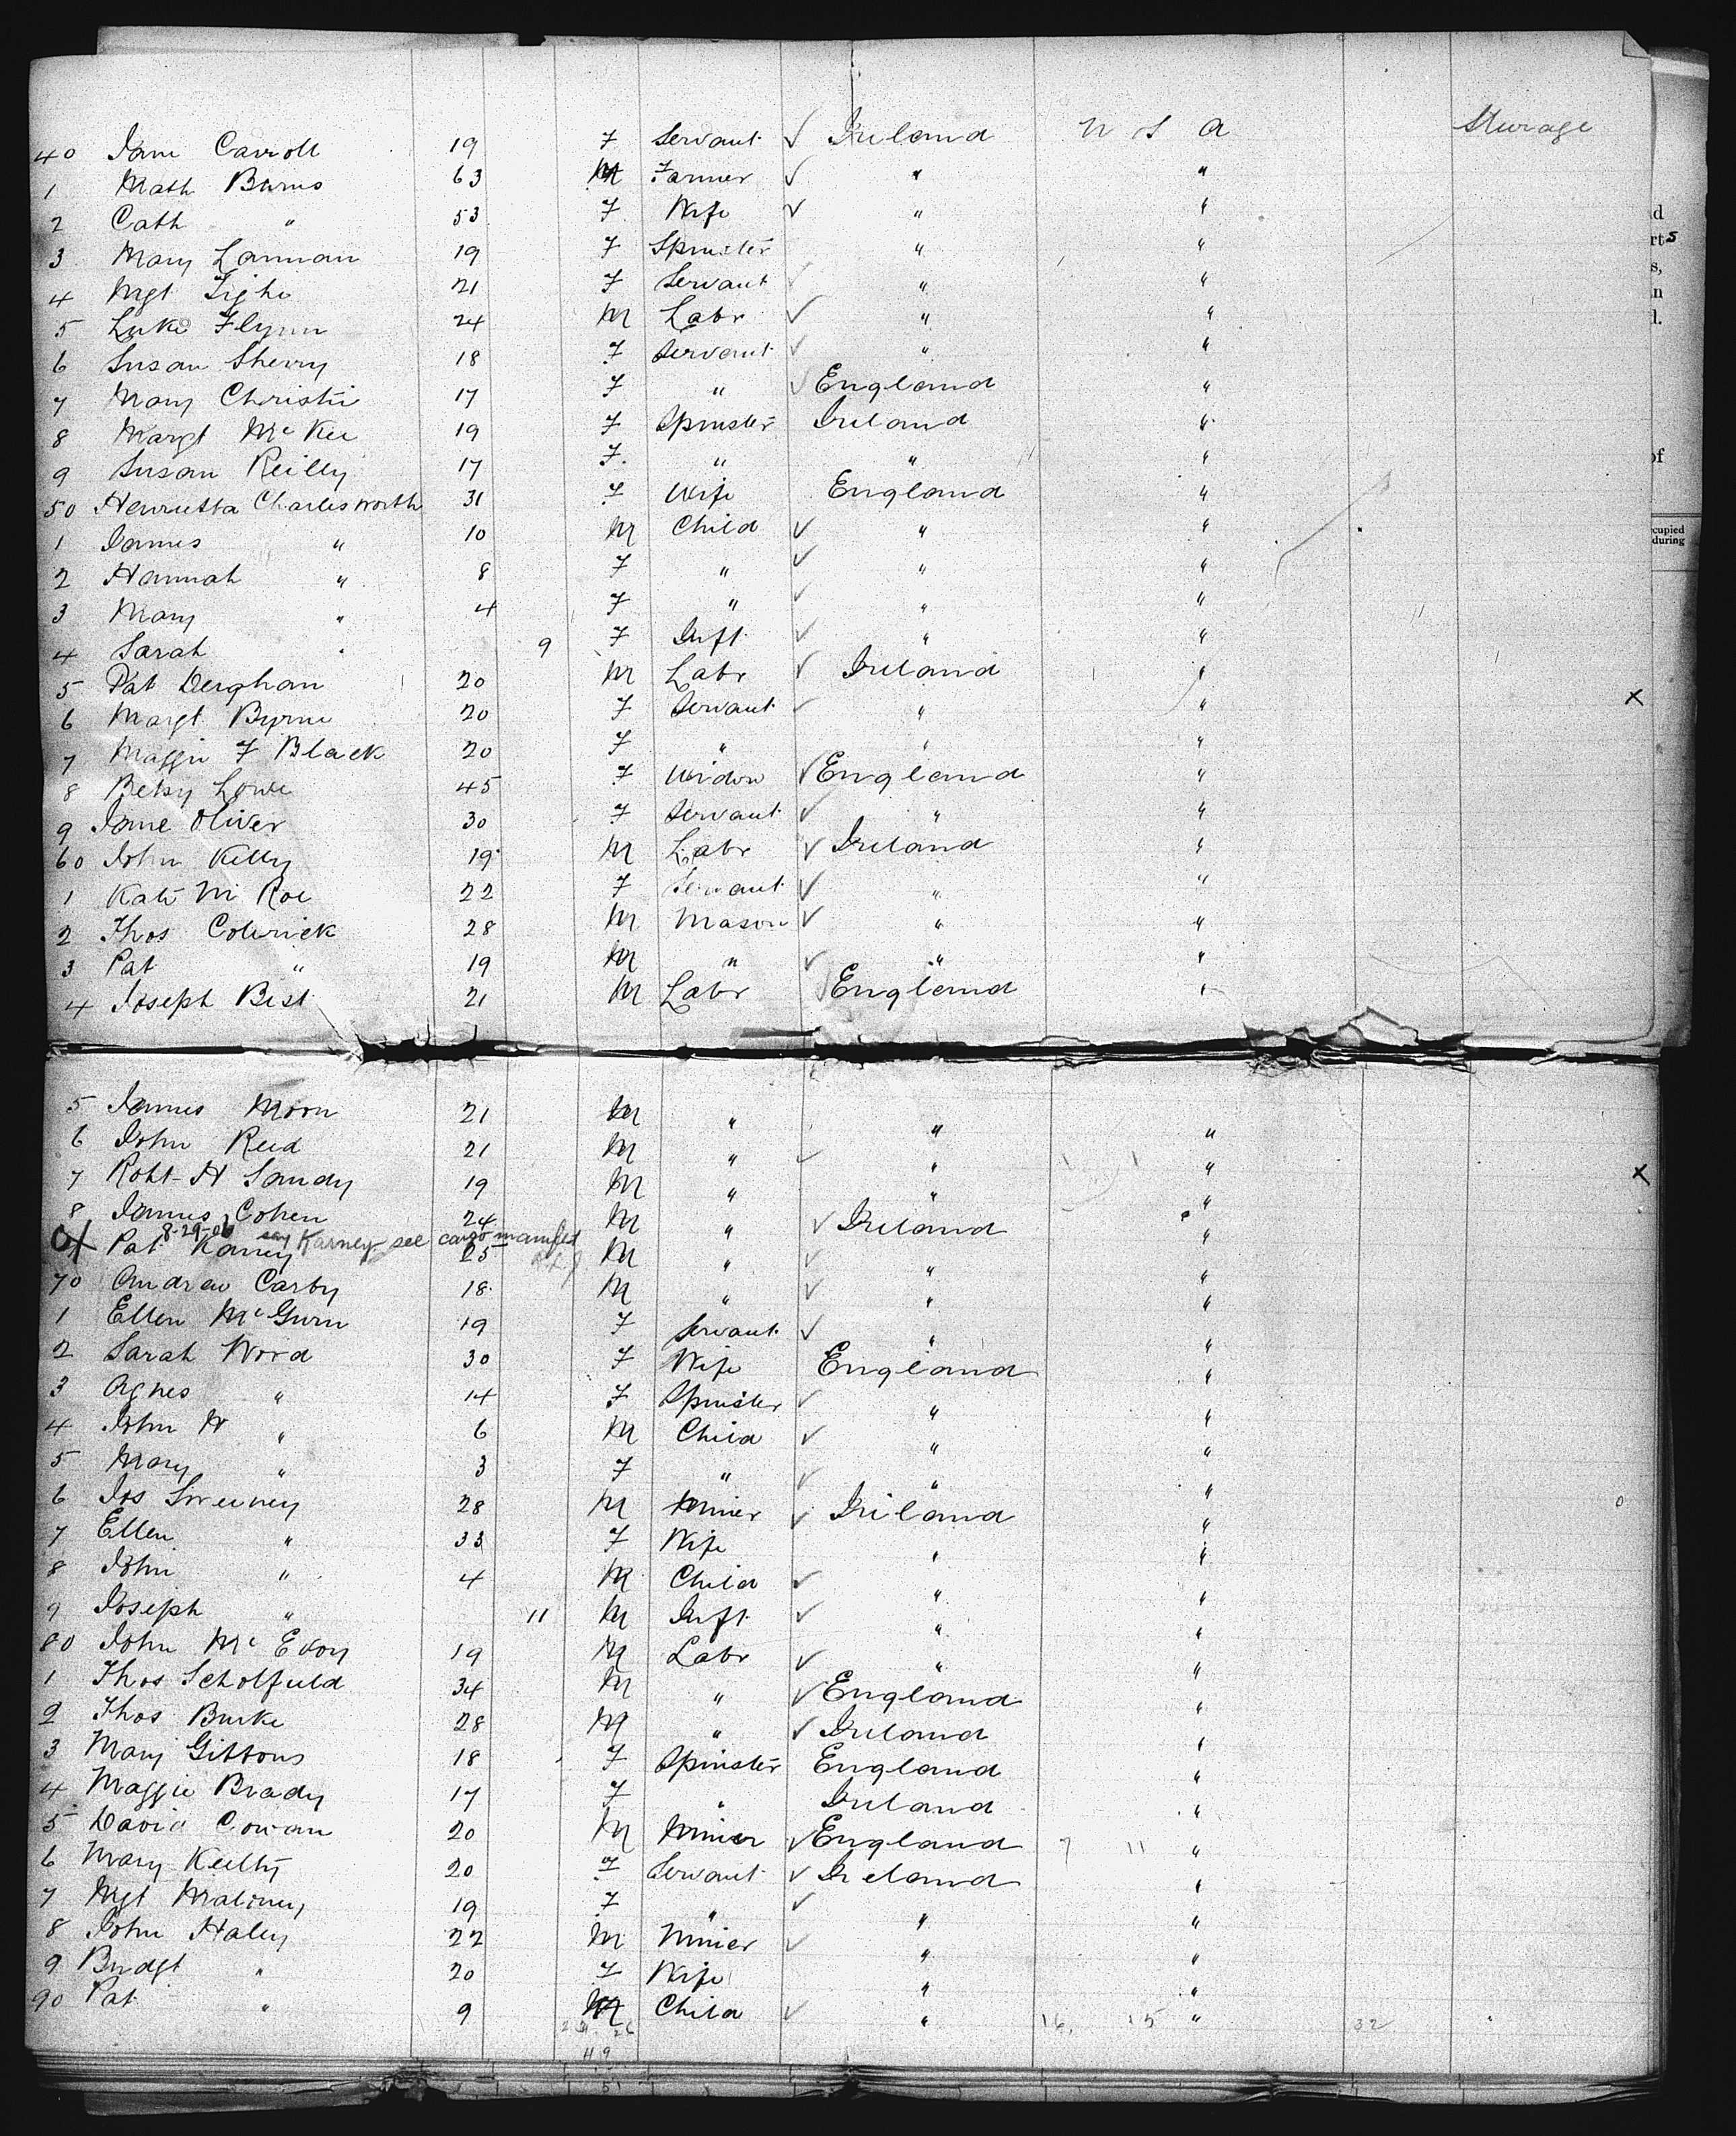 40 Jane Carroll 19 F Servant ✓ Ireland U S A Steerage
1 Math Burns 63 M Farmer ✓ " "
2 Cath " 53 F Wife ✓ " "
3 Mary Lannan 19 F Spinster " "
4 Mgt Tighe 21 F Servant ✓ " "
5 Luke Flynn 24 M Labr ✓ " "
6 Susan Sherry 18 F Servant ✓ " "
7 Mary Christie 17 F " ✓ England "
8 Margt McKee 19 F Spinster Ireland "
9 Susan Reilly 17 F " " "
50 Henrietta Charlesworth 31 F Wife England "
1 James " 10 M Child ✓ " "
2 Hannah " 8 F " ✓ " "
3 Mary " 4 F " ✓ " "
4 Sarah " 9 F Inft ✓ " "
5 Pat Derghan 20 M Labr ✓ Ireland "
6 Margt Byrne 20 F Servant ✓ " " x
7 Maggie F Black 20 F " " "
8 Betsy Lowe 45 F Widow ✓ England "
9 Jane Oliver 30 F Servant ✓ " "
60 John Kelly 19 M Labr ✓ Ireland "
1 Kate M Roe 22 F Servant ✓ " "
2 Thos Colerick 28 M Mason ✓ " "
3 Pat " 19 M " ✓ " "
4 Joseph Best 21 M Labr England "
5 James Moon 21 M " " "
6 John Reid 21 M " ✓ " "
7 Robt H Sandy 19 M " " " x
8 James Cohen 24 M " ✓ Ireland "
8-29-06 say Karney see cargo manifest
Pat Karney 25 M " ✓ " "
70 Andrew Carby 18 M " ✓ " "
1 Ellen McGurn 19 F Servant ✓ " "
2 Sarah Word 30 F Wife England "
3 Agnes " 14 F Spinster ✓ " "
4 John W " 6 M Child ✓ " "
5 Mary " 3 F " ✓ " "
6 Jos Sweeney 28 M Miner ✓ Ireland "
7 Ellen " 33 F Wife " "
8 John " 4 M Child ✓ " "
9 Joseph " 11 M Inft ✓ " "
80 John McEvoy 19 M Labr ✓ " "
1 Thos Scholfield 34 M " ✓ England "
2 Thos Burke 28 M " ✓ Ireland "
3 Mary Gibbons 18 F Spinster England "
4 Maggie Brady 17 F " Ireland "
5 David Cowan 20 M Miner ✓ England 7 11 "
6 Mary Keilty 20 F Servant ✓ Ireland "
7 Mgt Maloney 19 F " ✓ " "
8 John Haley 22 M Miner ✓ " "
9 Bridgt " 20 F Wife " "
90 Pat " 9 M Child ✓ " 16 15 " 32
49
51
cupied
during